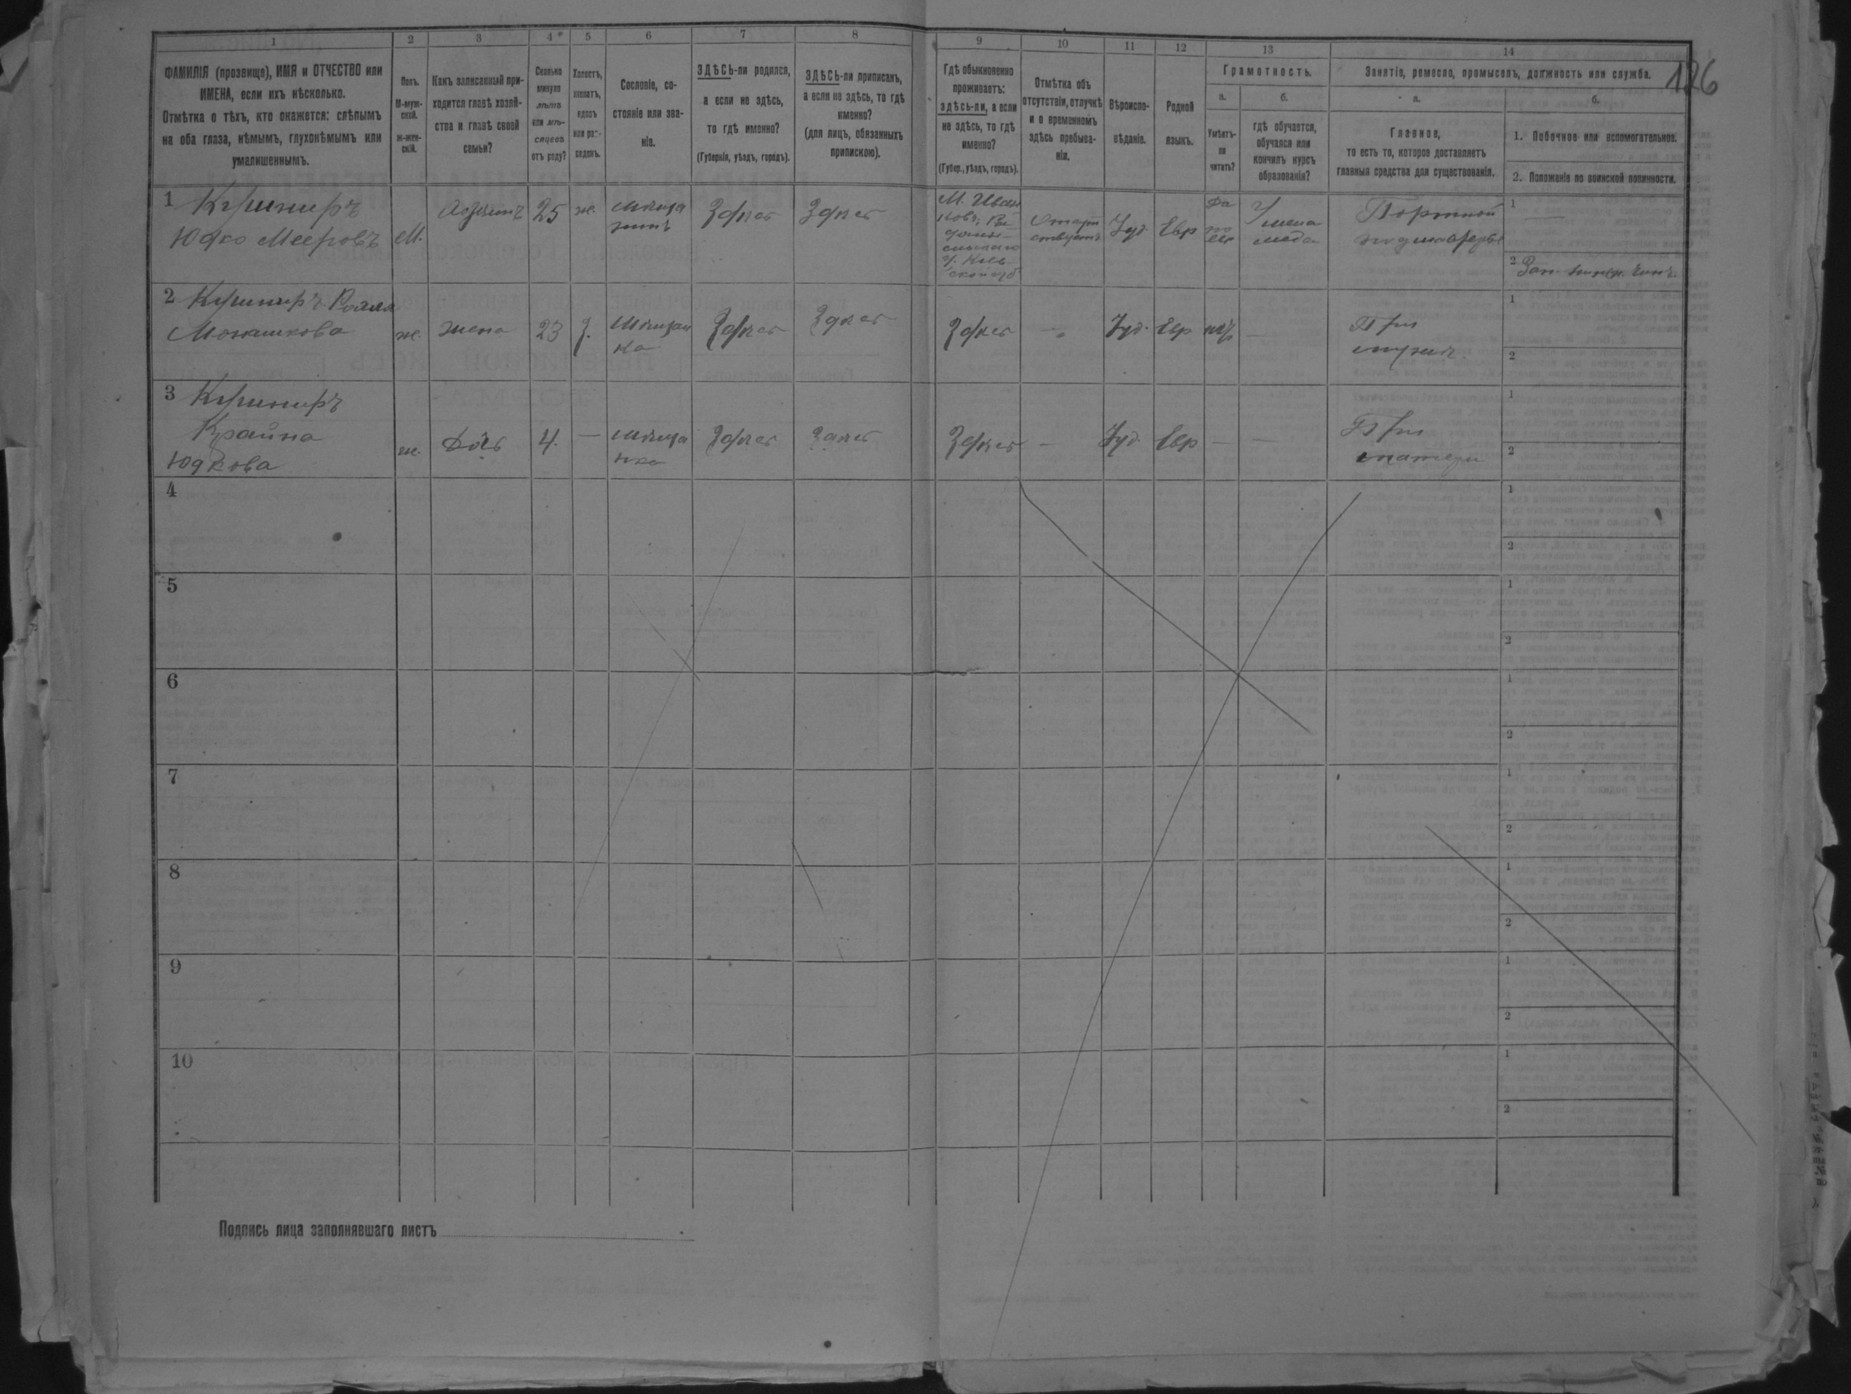 126
1 2 3 4 5 6 7 8 9 10 11 12 13 14
ФАМИЛІЯ (прозвище), ИМЯ и ОТЧЕСТВО или
ИМЕНА, если ихъ нѣсколько.
Отмѣтка о тѣхъ, кто окажется: слѣпымъ
на оба глаза, нѣмымъ, глухонѣмымъ или
умалишеннымъ.
Полъ.
М-муж-
ской.
Ж-жен-
скій.
Какъ записанный при-
ходится главѣ хозяй-
ства и главѣ своей
семьи?
Сколько
минуло
лѣтъ
или мѣ-
сяцевъ
отъ роду?
Холостъ,
женатъ,
вдовъ
или раз-
веденъ.
Сословіе, со-
стояніе или зва-
ніе.
ЗДѢСЬ-ли родился,
а если не здѣсь,
то гдѣ именно?
(Губернія, уѣздъ, городъ).
ЗДѢСЬ-ли приписанъ,
а если не здѣсь, то гдѣ
именно?
(для лицъ, обязанныхъ
припискою).
Гдѣ обыкновенно
проживаетъ:
здѣсь-ли, а если
не здѣсь, то гдѣ
именно?
(Губер., уѣздъ, городъ).
Отмѣтка объ
отсутствіи, отлучкѣ
и о временномъ
здѣсь пребыва-
ніи.
Вѣроиспо-
вѣданіе.
Родной
языкъ.
Грамотность.
а.
Умѣетъ-
ли
читать?
б.
гдѣ обучается,
обучался или
кончилъ курсъ
образованія?
Занятіе, ремесло, промыселъ, должность или служба.
а.
Главное,
то есть то, которое доставляетъ
главныя средства для существованія.
б.
1. Побочное или вспомогательное.
2. Положеніе по воинской повинности.
1 Кушниръ
Юдко Мееровъ
М.
Хозяинъ
25
ж.
мѣща
нинъ
Здѣсь
Здѣсь
М. Иван
ковъ, Ра
домы-
сльскаго
у. Кіев
ской губ
Отсут
ствуетъ
Іуд.
Евр
Да
по
евр
У
мела
меда
Портной
1 —
2
2 Кушниръ Рохля
Монашкова
ж.
жена
23
З.
Мѣщан
ка
Здѣсь
Здѣсь
Здѣсь
—
Іуд.
Евр
нѣт
—
При
мужѣ
1
2
3 Кушниръ
Крайна
Юдкова
ж.
Дочь
4.
—
мѣща
нка
Здѣсь
Здѣсь
Здѣсь
—
Іуд.
Евр
—
—
При
матери
1
2
4
1
2
5
1
2
6
1
2
7
1
2
8
1
2
9
1
2
10
1
2
Подпись лица заполнявшаго листъ